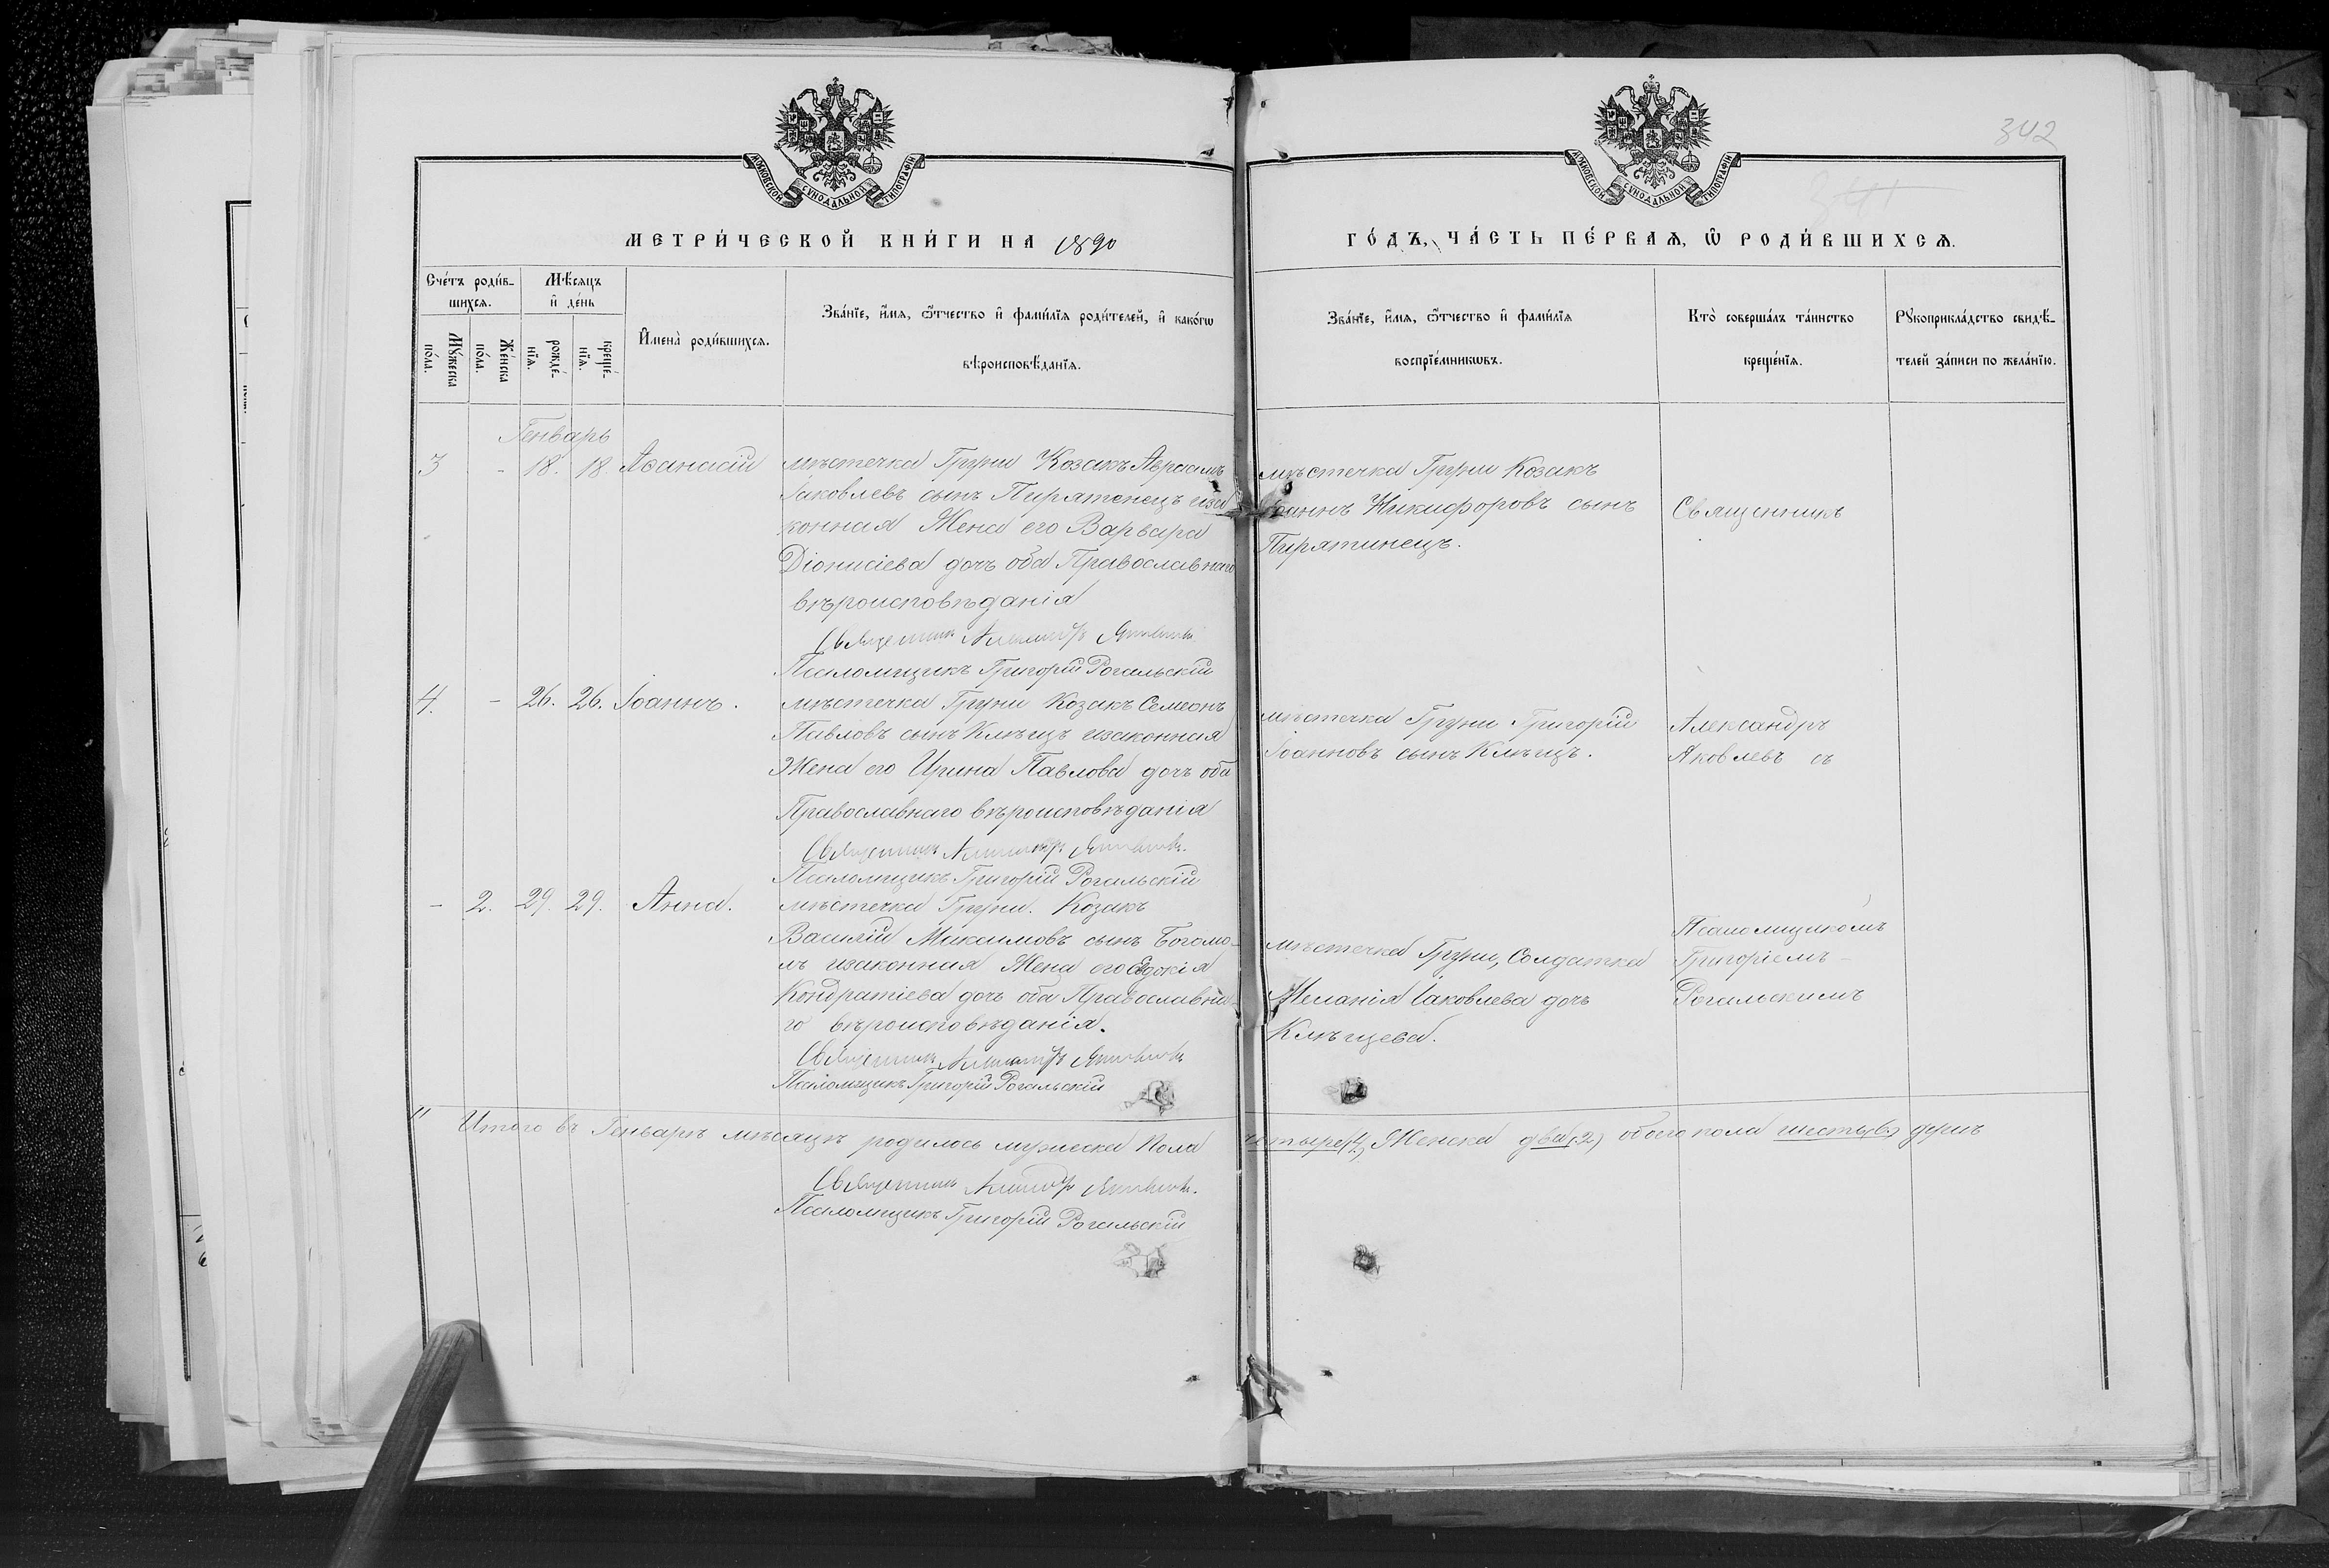 342
МОСКОВСКОЙ СѴНОДАЛЬНОЙ ТИПОГРАФІИ
МОСКОВСКОЙ СѴНОДАЛЬНОЙ ТИПОГРАФІИ
МЕТРИ́ЧЕСКОЙ КНИ́ГИ НА 1890
ГО́ДЪ, ЧА́СТЬ ПЕ́РВАЯ, Ѿ РОДИ́ВШИХСЯ.
Сче́тъ роди́в-
шихся.
Мѣ́сяцъ
и҆ де́нь
Мꙋ́жеска
по́ла.
Же́нска
по́ла.
рожде́-
нїя.
креще́-
нїя.
И҆мена̀ роди́вшихся.
Зва́нїе, и҆́мя, ѻ҆́тчество и҆ фами́лїя роди́телей, и҆ како́гѡ
вѣроисповѣ́данїя.
Зва́нїе, и҆́мя, ѻ҆́тчество и҆ фами́лїя
воспрїе́мникѡвъ.
Кто̀ соверша́лъ та́инство
креще́нїя.
Рꙋкоприкла́дство свидѣ́-
телей за́писи по жела́нїю.
Генварь
3 - 18. 18. Аѳанасій мѣстечка Груни Козакъ Авраамъ
Іаковлевъ сынъ Пирятенецъ иза
конная Жена его Варвара
Діонисіева дочь оба Православнаго
вѣроисповѣданія
Священник Александръ Яковлевъ
Псаломщикъ Григорій Рогальскій
мѣстечка Груни Козакъ
Іоаннъ Никифоровъ сынъ
Пирятинецъ.
Священникъ
4. - 26. 26. Іоаннъ. мѣстечка Груни Козакъ Семеонъ
Павловъ сынъ Клѣщъ изаконная
Жена его Ирина Павлова дочь оба
Православнаго вѣроисповѣданія
Священникъ Александръ Яковлевъ.
Псаломщикъ Григорій Рогальскій
мѣстечка Груни Григорій
Іоанновъ сынъ Клѣщъ.
Александръ
Яковлевъ съ
- 2. 29. 29. Анна. мѣстечка Груни. Козакъ
Василій Максимовъ сынъ Богомо-
лъ изаконная Жена его Евдокія
Кондратіева дочь оба Православна-
го вѣроисповѣданія.
Священник Александръ Яковлевъ
Псаломщикъ Григорій Рогальскій
мѣстечка Груни, Солдатка
Меланія Іаковлева дочь
Клѣщева.
Псаломщикомъ
Григоріемъ -
Рогальскимъ
" Итого въ Генварѣ мѣсяцѣ родилось мужеска Пола четыре (4), Женска два (2) обоего пола шесть (6) душъ
Священник Александръ Яковлевъ.
Псаломщикъ Григорій Рогальскій